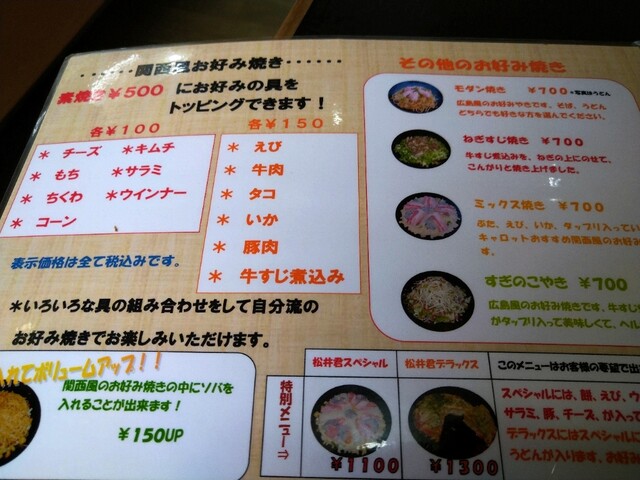 ・・・・・・関西風お好み焼き・・・・・・
素焼き¥500 にお好みの具を
トッピングできます！
各¥100
＊ チーズ ＊キムチ
＊ もち ＊サラミ
＊ ちくわ ＊ウインナー
＊ コーン
各¥150
＊ えび
＊ 牛肉
＊ タコ
＊ いか
＊ 豚肉
＊ 牛すじ煮込み
表示価格は全て税込みです。
＊いろいろな具の組み合わせをして自分流の
お好み焼きでお楽しみいただけます。
入れてボリュームアップ！！
関西風のお好み焼きの中にソバを
入れることが出来ます！
¥150UP
その他のお好み焼き
モダン焼き ¥700 ＊写真はうどん
広島風のお好みやきです。そば、うどん
どちらでも好きな方を選んでください。
ねぎすじ焼き ¥700
牛すじ煮込みを、ねぎの上にのせて、
こんがりと焼き上げました。
ミックス焼き ¥700
ぶた、えび、いか、タップリ入ってい
キャロットおすすめ関西風のお好み
すぎのこやき ¥700
広島風のお好み焼きです。牛すじ
がタップリ入って美味しくて、ヘル
特別メニュー⇒
松井君スペシャル
¥1100
松井君デラックス
¥1300
このメニューはお客様の要望で出
スペシャルには、餅、えび、ウ
サラミ、豚、チーズ、が入って
デラックスにはスペシャルに
うどんが入ります。お好み